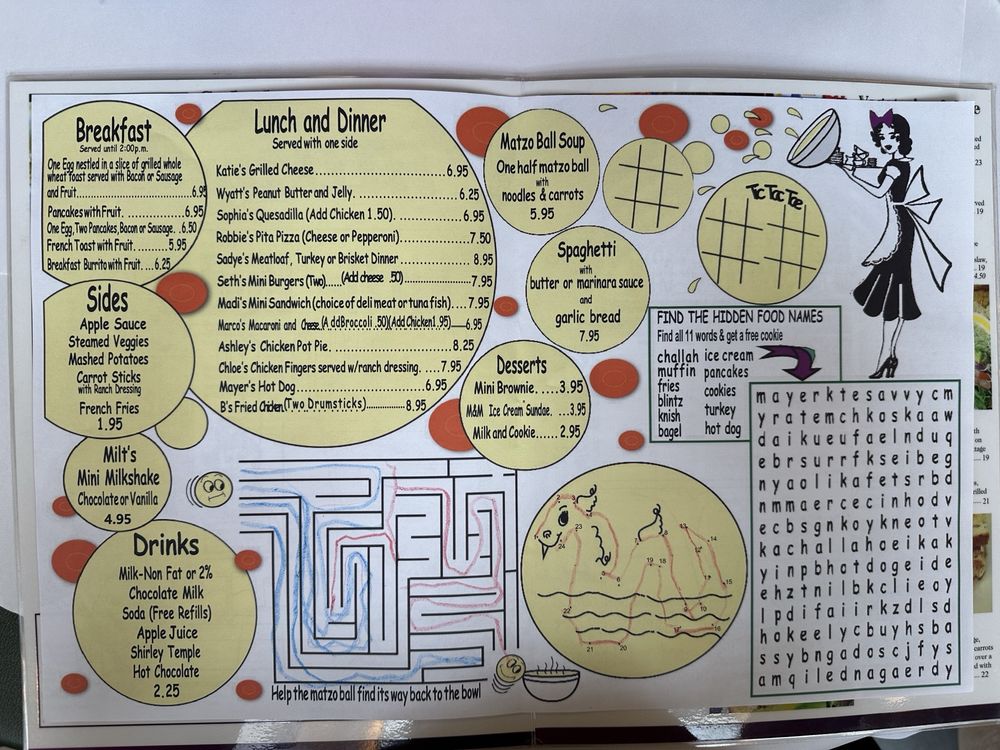 Breakfast
Served until 2:00p.m.
One Egg nestled in a slice of grilled whole
wheat toast served with Bacon or Sausage
and Fruit....................6.95
Pancakes with Fruit. .......6.95
One Egg, Two Pancakes, Bacon or Sausage. .6.50
French Toast with Fruit. ........5.95
Breakfast Burrito with Fruit. ...6.25
Sides
Apple Sauce
Steamed Veggies
Mashed Potatoes
Carrot Sticks
with Ranch Dressing
French Fries
1.95
Milt's
Mini Milkshake
Chocolate or Vanilla
4.95
Drinks
Milk-Non Fat or 2%
Chocolate Milk
Soda (Free Refills)
Apple Juice
Shirley Temple
Hot Chocolate
2.25
Lunch and Dinner
Served with one side
Katie's Grilled Cheese................................6.95
Wyatt's Peanut Butter and Jelly.......................6.25
Sophia's Quesadilla (Add Chicken 1.50). ...............6.95
Robbie's Pita Pizza (Cheese or Pepperoni)................7.50
Sadye's Meatloaf, Turkey or Brisket Dinner ................8.95
Seth's Mini Burgers (Two).....(Add cheese .50)................7.95
Madi's Mini Sandwich (choice of deli meat or tuna fish)....7.95
Marco's Macaroni and Cheese.(Add Broccoli .50)(Add Chicken1.95)......6.95
Ashley's Chicken Pot Pie. ..........................8.25
Chloe's Chicken Fingers served w/ranch dressing. ....7.95
Mayer's Hot Dog............................6.95
B's Fried Chicken(Two Drumsticks)................8.95
Matzo Ball Soup
One half matzo ball
with
noodles & carrots
5.95
Spaghetti
with
butter or marinara sauce
and
garlic bread
7.95
Desserts
Mini Brownie. ....3.95
M&M Ice Cream Sundae. ...3.95
Milk and Cookie...... 2.95
Tic Tac Toe
FIND THE HIDDEN FOOD NAMES
Find all 11 words & get a free cookie
challah ice cream
muffin pancakes
fries cookies
blintz
knish turkey
bagel hot dog
m a y e r k t e s a v v y c m
y r a t e m c h k a s k a a w
d a i k u e u f a e l n d u q
e b r s u r r f k s e i b e g
n y a o l i k a f e t s r b d
n m m a e r c e c i n h o d v
e c b s g n k o y k n e o t v
k a c h a l l a h o e i k a k
y i n p b h o t d o g e i d e
e h z t n i l b k c l i e o y
l p d i f a i i r k z d l s d
h o k e e l y c b u y h s b a
s s y b n g a d o s c j f y s
a m q i l e d n a g a e r d y
Help the matzo ball find its way back to the bowl